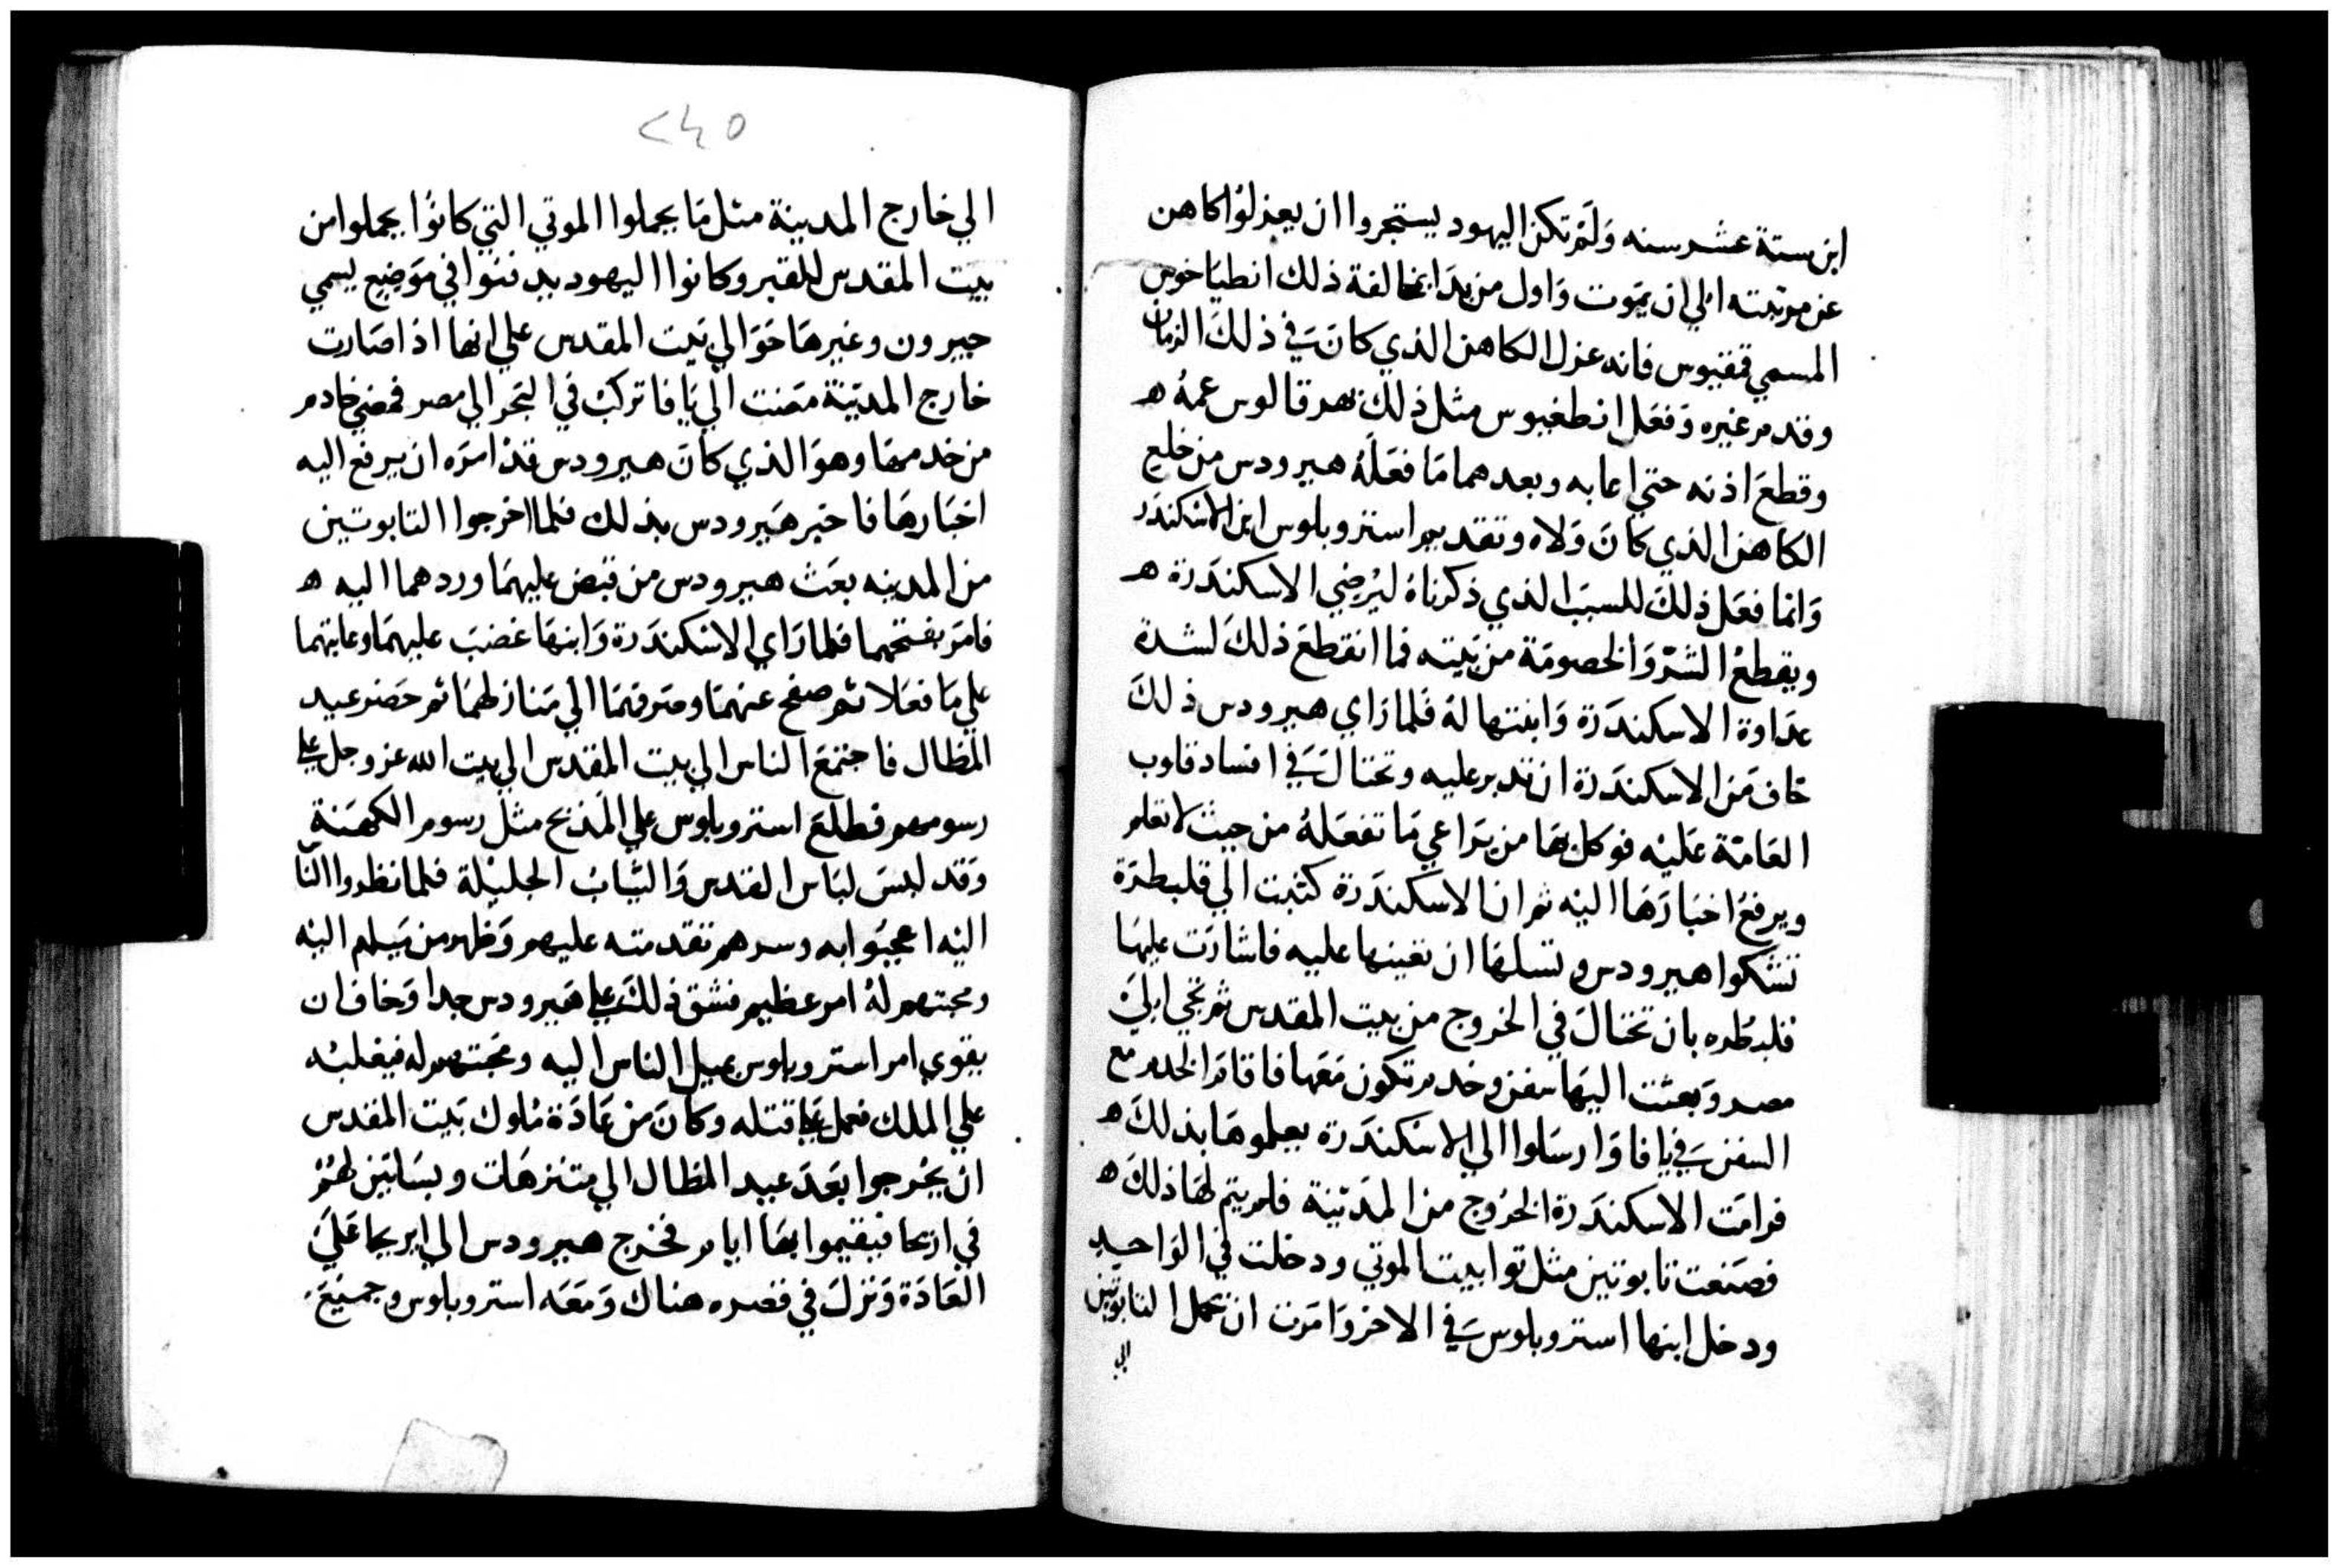 ابن ستة عشر سنه وَلَمْ تكن اليهود يستجروا ان يعزلوُا كاهن
عن مرتبته الي ان يموت وَاول من بدَا بمخالفة ذلك انطيَاخوس
المسمي فنفيوس فانه عزل الكاهن الذي كانَ في ذلكَ الزمان
وقدم غيره وَفعَل انطغبوس مثل ذلك بهرقالوس عمهُ ه
وقطعَ اذنه حتي اعابه وبعدهما مَا فعَلَهُ هيرودس من خلع
الكاهن الذي كانَ وَلاه وتقديم استروبلوس ابن الاسكندر
وَانما فعَل ذلكَ للسبَب الذي ذكرناهُ ليُرضي الاسكندَرة ه
ويقطعُ الشرّ وَالخصومَة من بَيته فما انقطعَ ذلكَ لشدة
عدَاوة الاسكندَرة وَابنتها لهُ فلما رَاي هيرودس ذلكَ
خاف مَن الاسكندَرة ان تدبر عليه وتحتالَ في افساد قلوب
العَامّة عَليْه فوكل بهَا من يرَاعي مَا تفعَلهُ من حيث لا تعلم
ويرفعُ اخبَارَهَا اليْه ثم ان الاسكندَرة كتبت الي قلبطرَة
تشكوا هيرودس وتسلهَا ان تعينها عليه فاشارَت عليهَا
قلبطُره بان تحتالَ في الخروج من بيت المقدس ثم تجي اليَ
مصر وَبعثت اليهَا سفن وخدم تكون مَعَها فاقامَ الخدم مع
السفن في يافا وَارسَلوا الي الاسكندَرة يعلموهَا بذلكَ ه
فرامَت الاسكندَرة الخرُوج من المدَينة فلم يتم لهَا ذلكَ ه
فصَنعت تابوتين مثل توابيت الموتي ودخلت في الوَاحد
ودخل ابنها استروبلوس في الاخر وَامَرت ان تحمل التابوتين
الي
٢٤٥
الي خارج المدينة مثل مَا يحملوا الموتي التي كانوُا يحملوا من
بيت المقدس للقبر وكانوا اليهود يدفنوا في مَوَضِع يسمي
جيرون وغيرهَا حَوَالي بَيت المقدس علي انها اذا صَارت
خارج المديَنة مَضت الي يَافا تركبْ في البَحر الي مصر فمضي خادم
من خدمهَا وهوَ الذي كانَ هيرودس قدْ امَرَه ان يرفع اليه
اخبَارهَا فاخبر هَيرودس بذلك فلما اخرجوا التابوتين
من المدينه بعَث هيرودس من قبض عليهمَا وردهما اليه ه
فامَر بفتحهما فلما رَاي الاسْكندَرة وَابنهَا غضبَ عليهمَا وعاتبهما
علي مَا فعَلا ثم صفح عنهمَا وصَرفهمَا الي مَنازلهمَا ثم حَضر عيد
المظال فاجتمعَ الناس الي بيت المقدس الي بيت الله عز وجل علي
رسومهم فطلعَ استروبلوس علي المذبح مثل رسوم الكهَنة
وَقد لبسَ لبَاس القدس وَالثيَاب الجليْلة فلما نظروا النّا
اليْه اعجبَوا به وسرهم تقدمته عليهم وَظهر من مَيلهم اليْه
ومحبتهم لهُ امر عظيم فشق ذلكَ علي هَيرودس جدا وَخاف ان
يقوي امر استروبلوس بميل الناس اليه ومحَبتهم له فيغلبْه
علي الملك فعمل علي قتله وكانَ من عَادَة مُلوك بَيت المقدس
ان يخرجوا بعَدَ عيد المظال الي متنزهَات وبسَاتين لهُمْ
في اريحا فيقيموا بهَا ايام فخرج هيرودس الي ايريحا عَليَ
العَادَة وَنزلَ في قصره هناك وَمَعَه استروبلوس وجميعَ